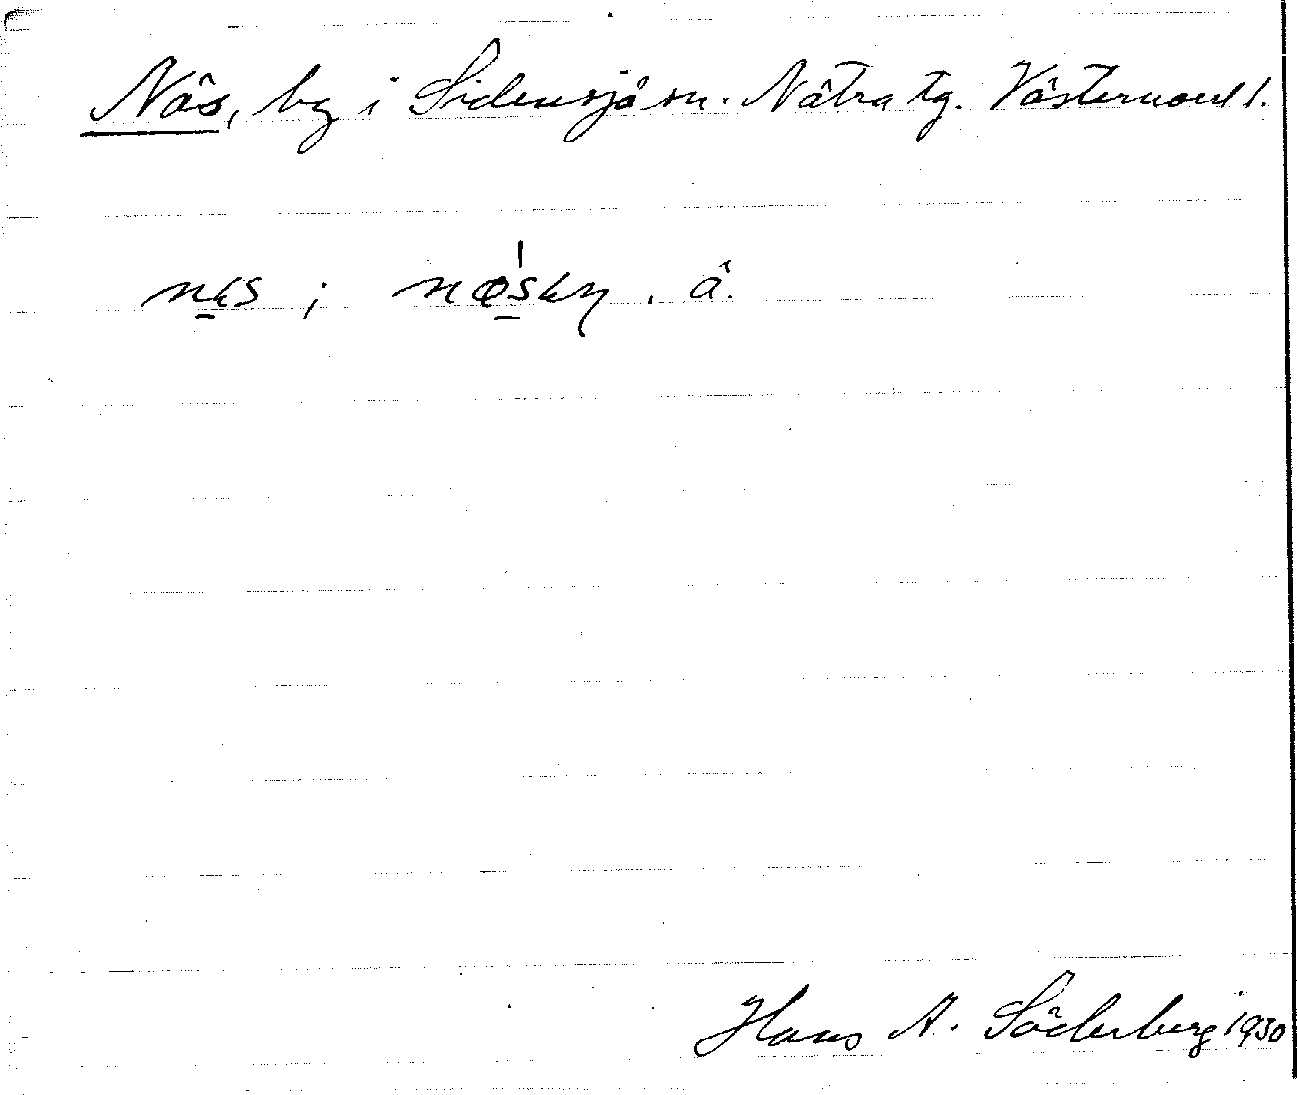 Näs, by i Sidensjö sn. Nätra tg. Västernorrl l.
Hans A. Söderberg 1930